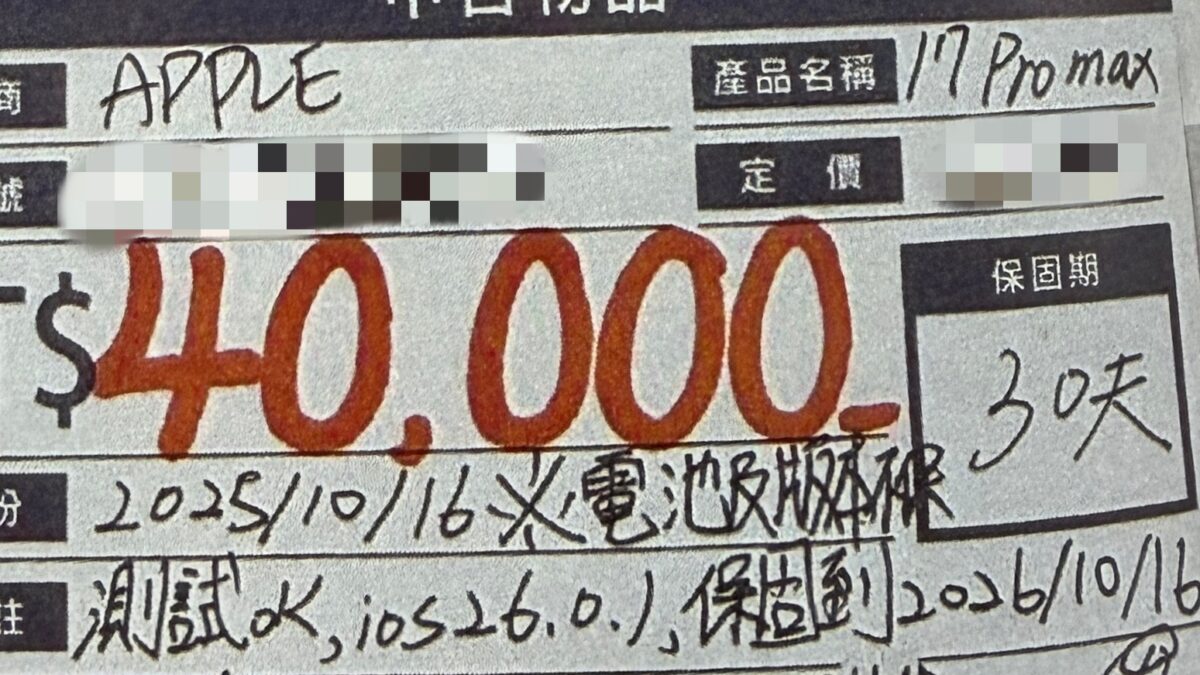 商 APPLE 產品名稱 17 Pro max
號 定價
$40,000- 保固期
30天
份 2025/10/16 ※電池及版本不保
註 測試OK, iOS 26.0.1, 保固到2026/10/16